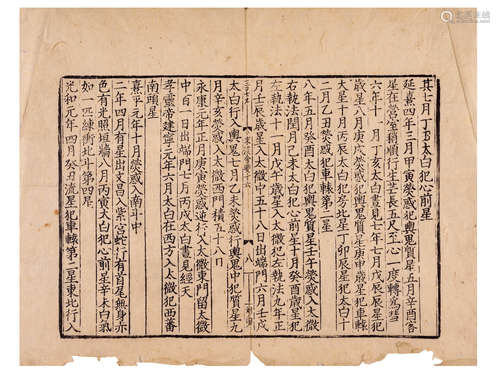 其七月丁丑太白犯心前星
延熹四年三月甲寅熒惑犯輿鬼質星五月辛酉客
星在營室稍順行生芒長五尺至心一度轉爲彗
六年十一月丁亥太白晝見七年七月戊辰辰星犯
歲星八月庚戌熒惑犯輿鬼質星庚申歲星犯軒轅
大星十月丙辰太白犯房北星丁卯辰星犯太白十
二月乙丑熒惑犯軒轅第二星
八年五月癸酉太白犯輿鬼質星壬午熒惑入太微
右執法閏月己未太白犯心前星十月癸酉歲星犯
左執法十一月戊午歲星入太微犯左執法九年正
月壬辰歲星入太微中五十八日出端門六月壬戌
八
太白行入輿鬼七月乙未熒惑行輿鬼中犯質星九
月辛亥熒惑入太微西門積五十八日
永康元年正月庚寅熒惑逆行入太微東門留太微
中百一日出端門七月丙戌太白晝見經天
孝靈帝建寧元年六月太白在西方入太微犯西蕃
南頭星
熹平元年十月熒惑入南斗中
二年四月有星出文昌入紫宮蛇行有首尾無身赤
色有光照垣牆八月丙寅太白犯心前星辛未白氣
如一匹練衝北斗第四星
光和元年四月癸丑流星犯軒轅第二星東北行入